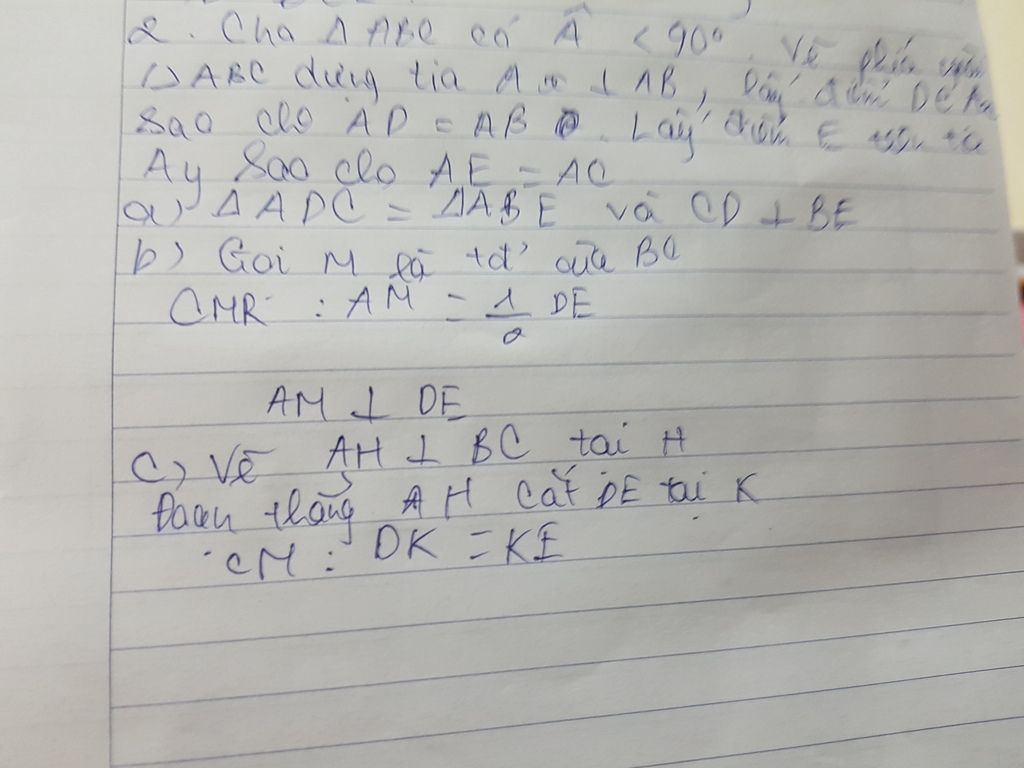 2. Cho △ABC có Â < 90°. Vẽ phía
△ABC dựng tia Ax ⊥ AB, Lấy điểm D ∈ Ax
sao cho AD = AB. Lấy điểm E trên tia
Ay sao cho AE = AC
a) △ADC = △ABE và CD ⊥ BE
b) Gọi M là tđ' của BC
CMR : AM = 1/2 DE
AM ⊥ DE
C) Vẽ AH ⊥ BC tại H
Đoạn thẳng AH cắt DE tại K
CM : DK = KE